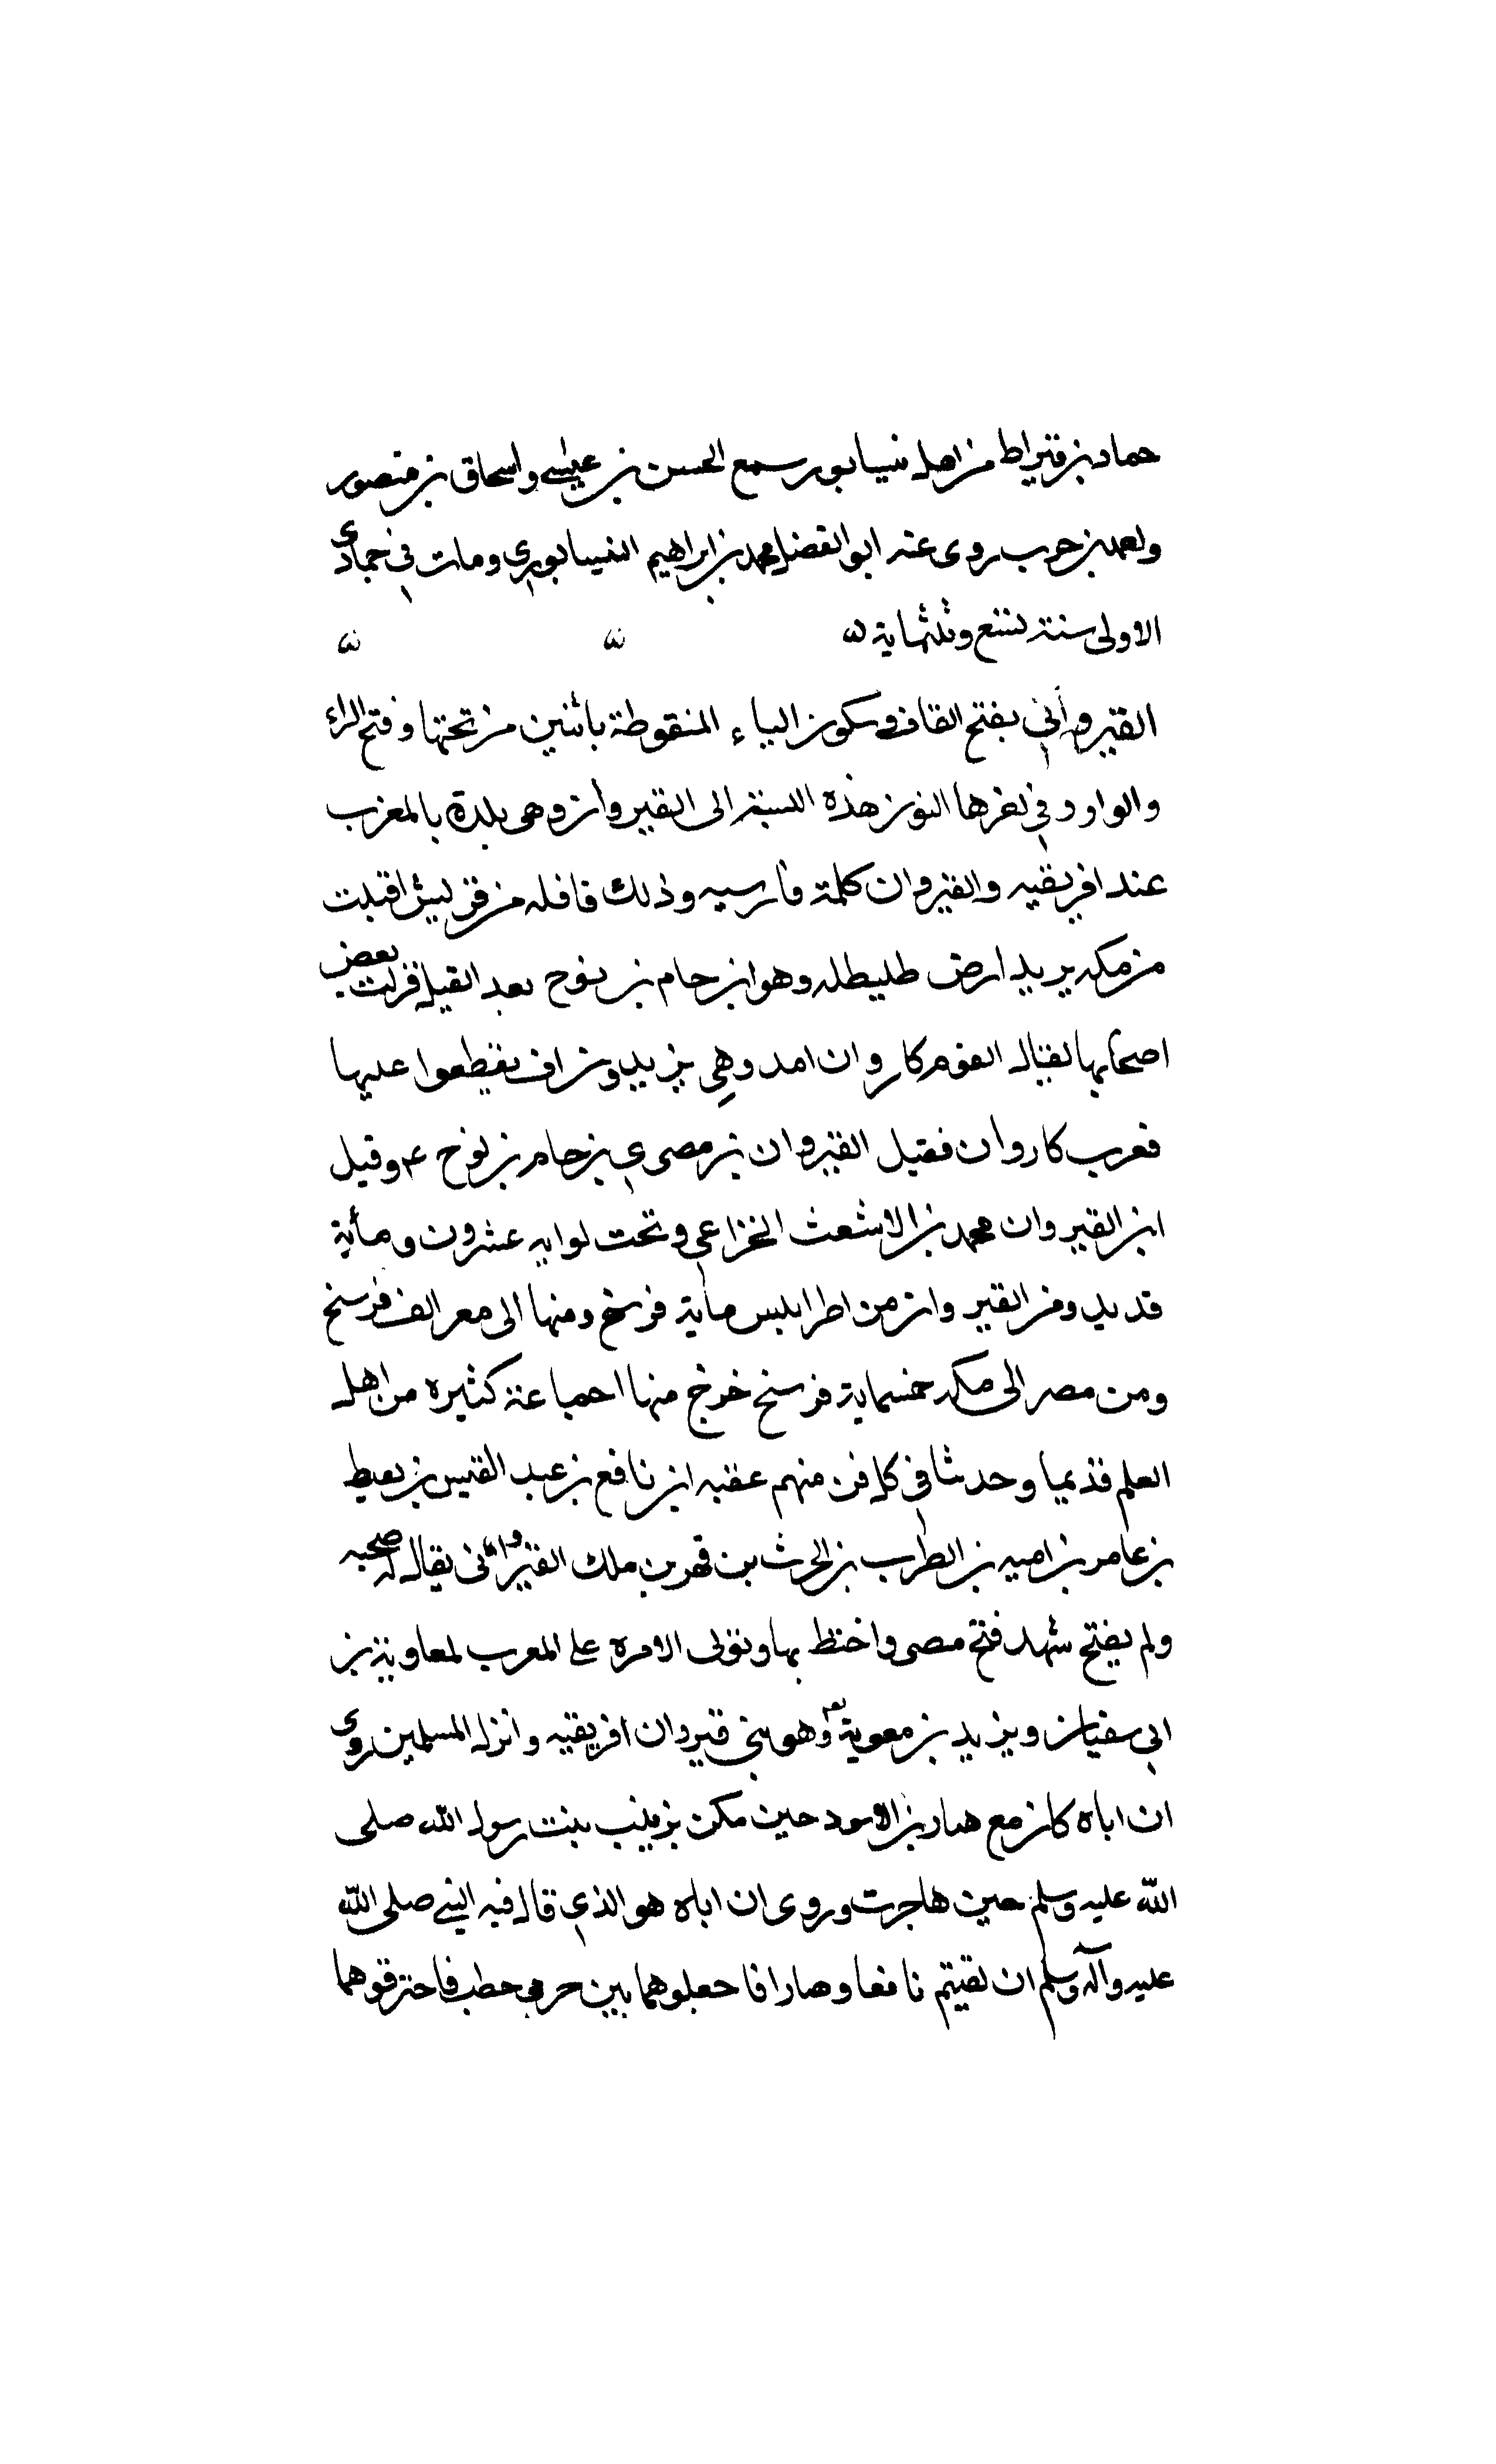 حماد بن قيراط من اهل نيسابور سمع الحسن بن عيسى واسحاق بن منصور
واحمد بن حرب روى عنه ابو الفضل محمد بن ابراهيم النيسابوري ومات في جمادى
الاولى سنة تسع وثلثماية
القيرواني بفتح القاف وسكون الياء المنقوطة باثنين من تحتها وفتح الراء
والواو وفي اخرها النون هذه النسبة الى القيروان وهى بلدة بالمغرب
عند افريقيه والقيروان كلمة فارسيه وذلك قافله من قريش اقبلت
من مكه يريد ارض طليطله وهو ابن حام بن نوح بعد القيل فنزلت بعض
اصحابها فقال القوم كاروان امد وهي يقطعوا عليها
فعرب كاروان فقيل القيروان بن مصرى بن حام بن نوح ع وقيل
ابن القيروان محمد بن الاشعث الخزاعي وتحت لوايه عشرون ومأية
قديد ومن القيروان من اطرابلس ماية فرسخ ومنها الى مصر الف فرسخ
ومن مصر الى مكه خمسماية فرسخ خرج منها احماعة كثيره من اهل
العلم قديما وحدثا في كل فن منهم عقبه ابن نافع بن عبد القيس بن لعيط
بن عامر بن اميه بن الطرب بن الحرث بن فهر بن ملك القيرواني يقال له صحبه
ولم يصح شهد فتح مصر واختط بها وتولى الامره على المغرب لمعاوية بن
ابي سفيان ويزيد بن معوية وهو بنى قيروان افريقيه وانزله المسلمين روى
ان اباه كان مع هبار بن الاسود حين مكن بزينب بنت رسول الله صلى
الله عليه وسلم حين هاجرت وروى ان اباه هو الذي قال فيه النبي صلى الله
عليه وآله وسلم ان لقيتم نافعا وهبارا فاجعلوهما بين حطب فاحترقوهما